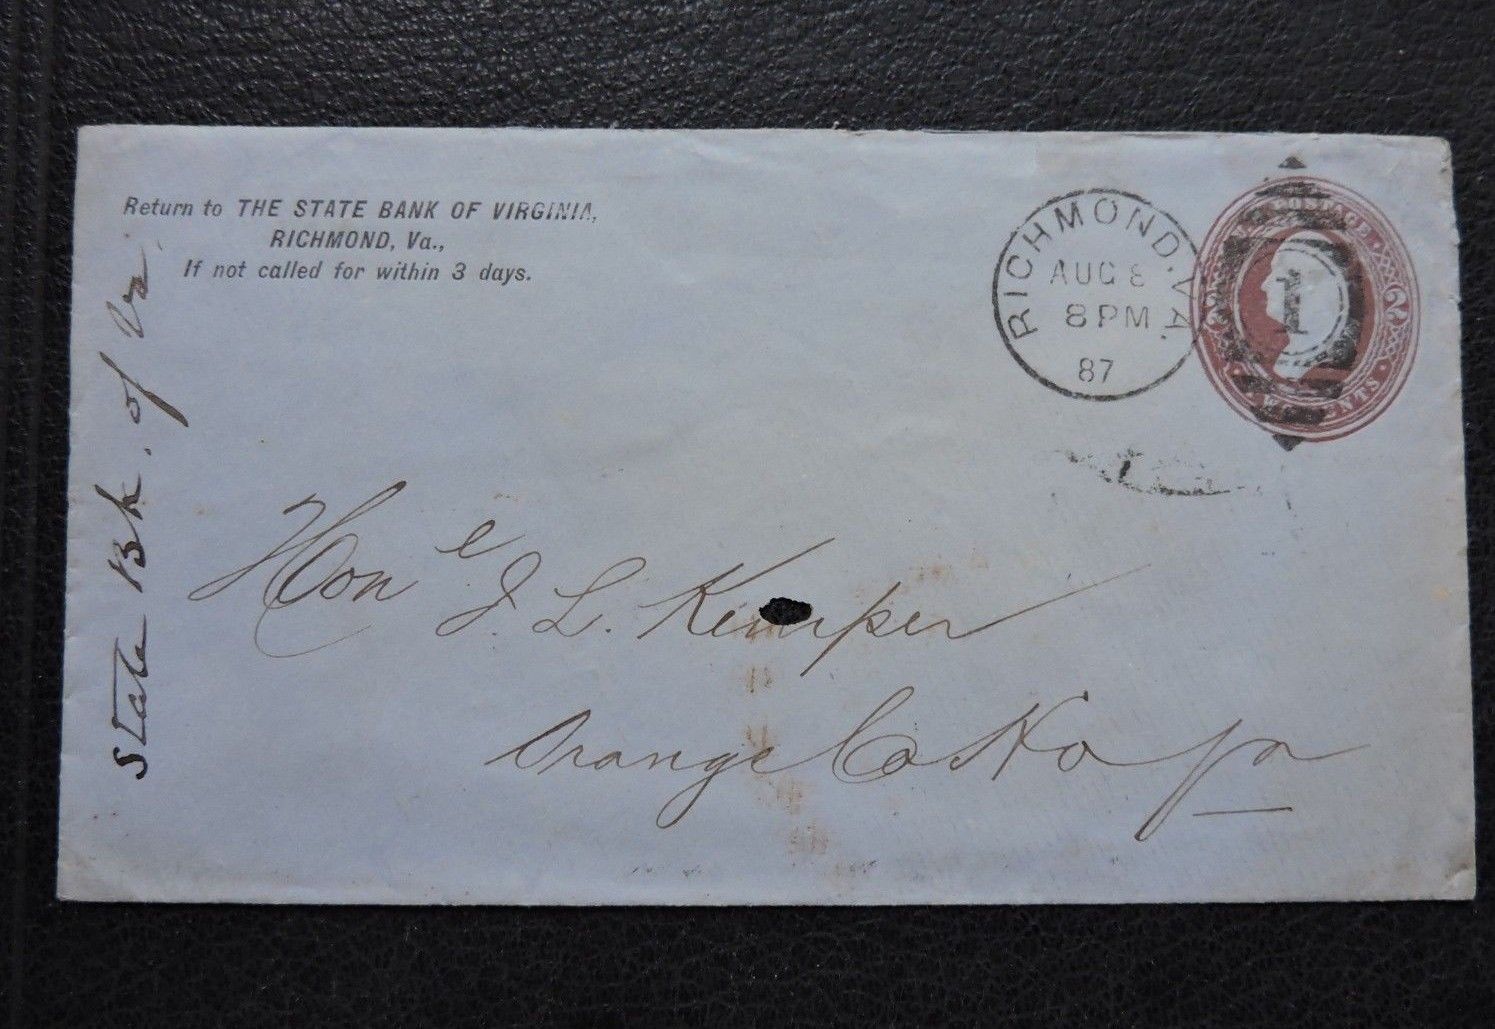 Return to THE STATE BANK OF VIRGINIA,
RICHMOND, Va.,
If not called for within 3 days.
State Bk. of Va
RICHMOND, VA.
AUG 8
8 PM
87
1
POSTAGE
2 2
CENTS
Hon^e J. L. Kemper
Orange Co Ho Va